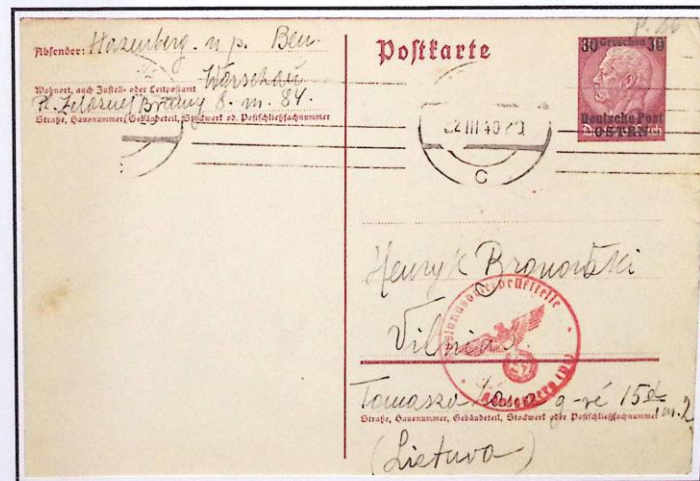 Absender: Hazenberg. n p. Ben.
Warschau
Wohnort, auch Zustell- oder Leitpostamt
Pl. Żelaznej Bramy 8. m. 84.
Straße, Hausnummer, Gebäudeteil, Stockwerk od. Postschließfachnummer
Postkarte
30 Groschen 30
Deutsche Post
OSTEN
III 40
C
Henryk Bronowski
Vilnius
Auslandsbriefprüfstelle
Tomaszo g-vė 15
m. 2
Straße, Hausnummer, Gebäudeteil, Stockwerk oder Postschließfachnummer
(Lietuva)